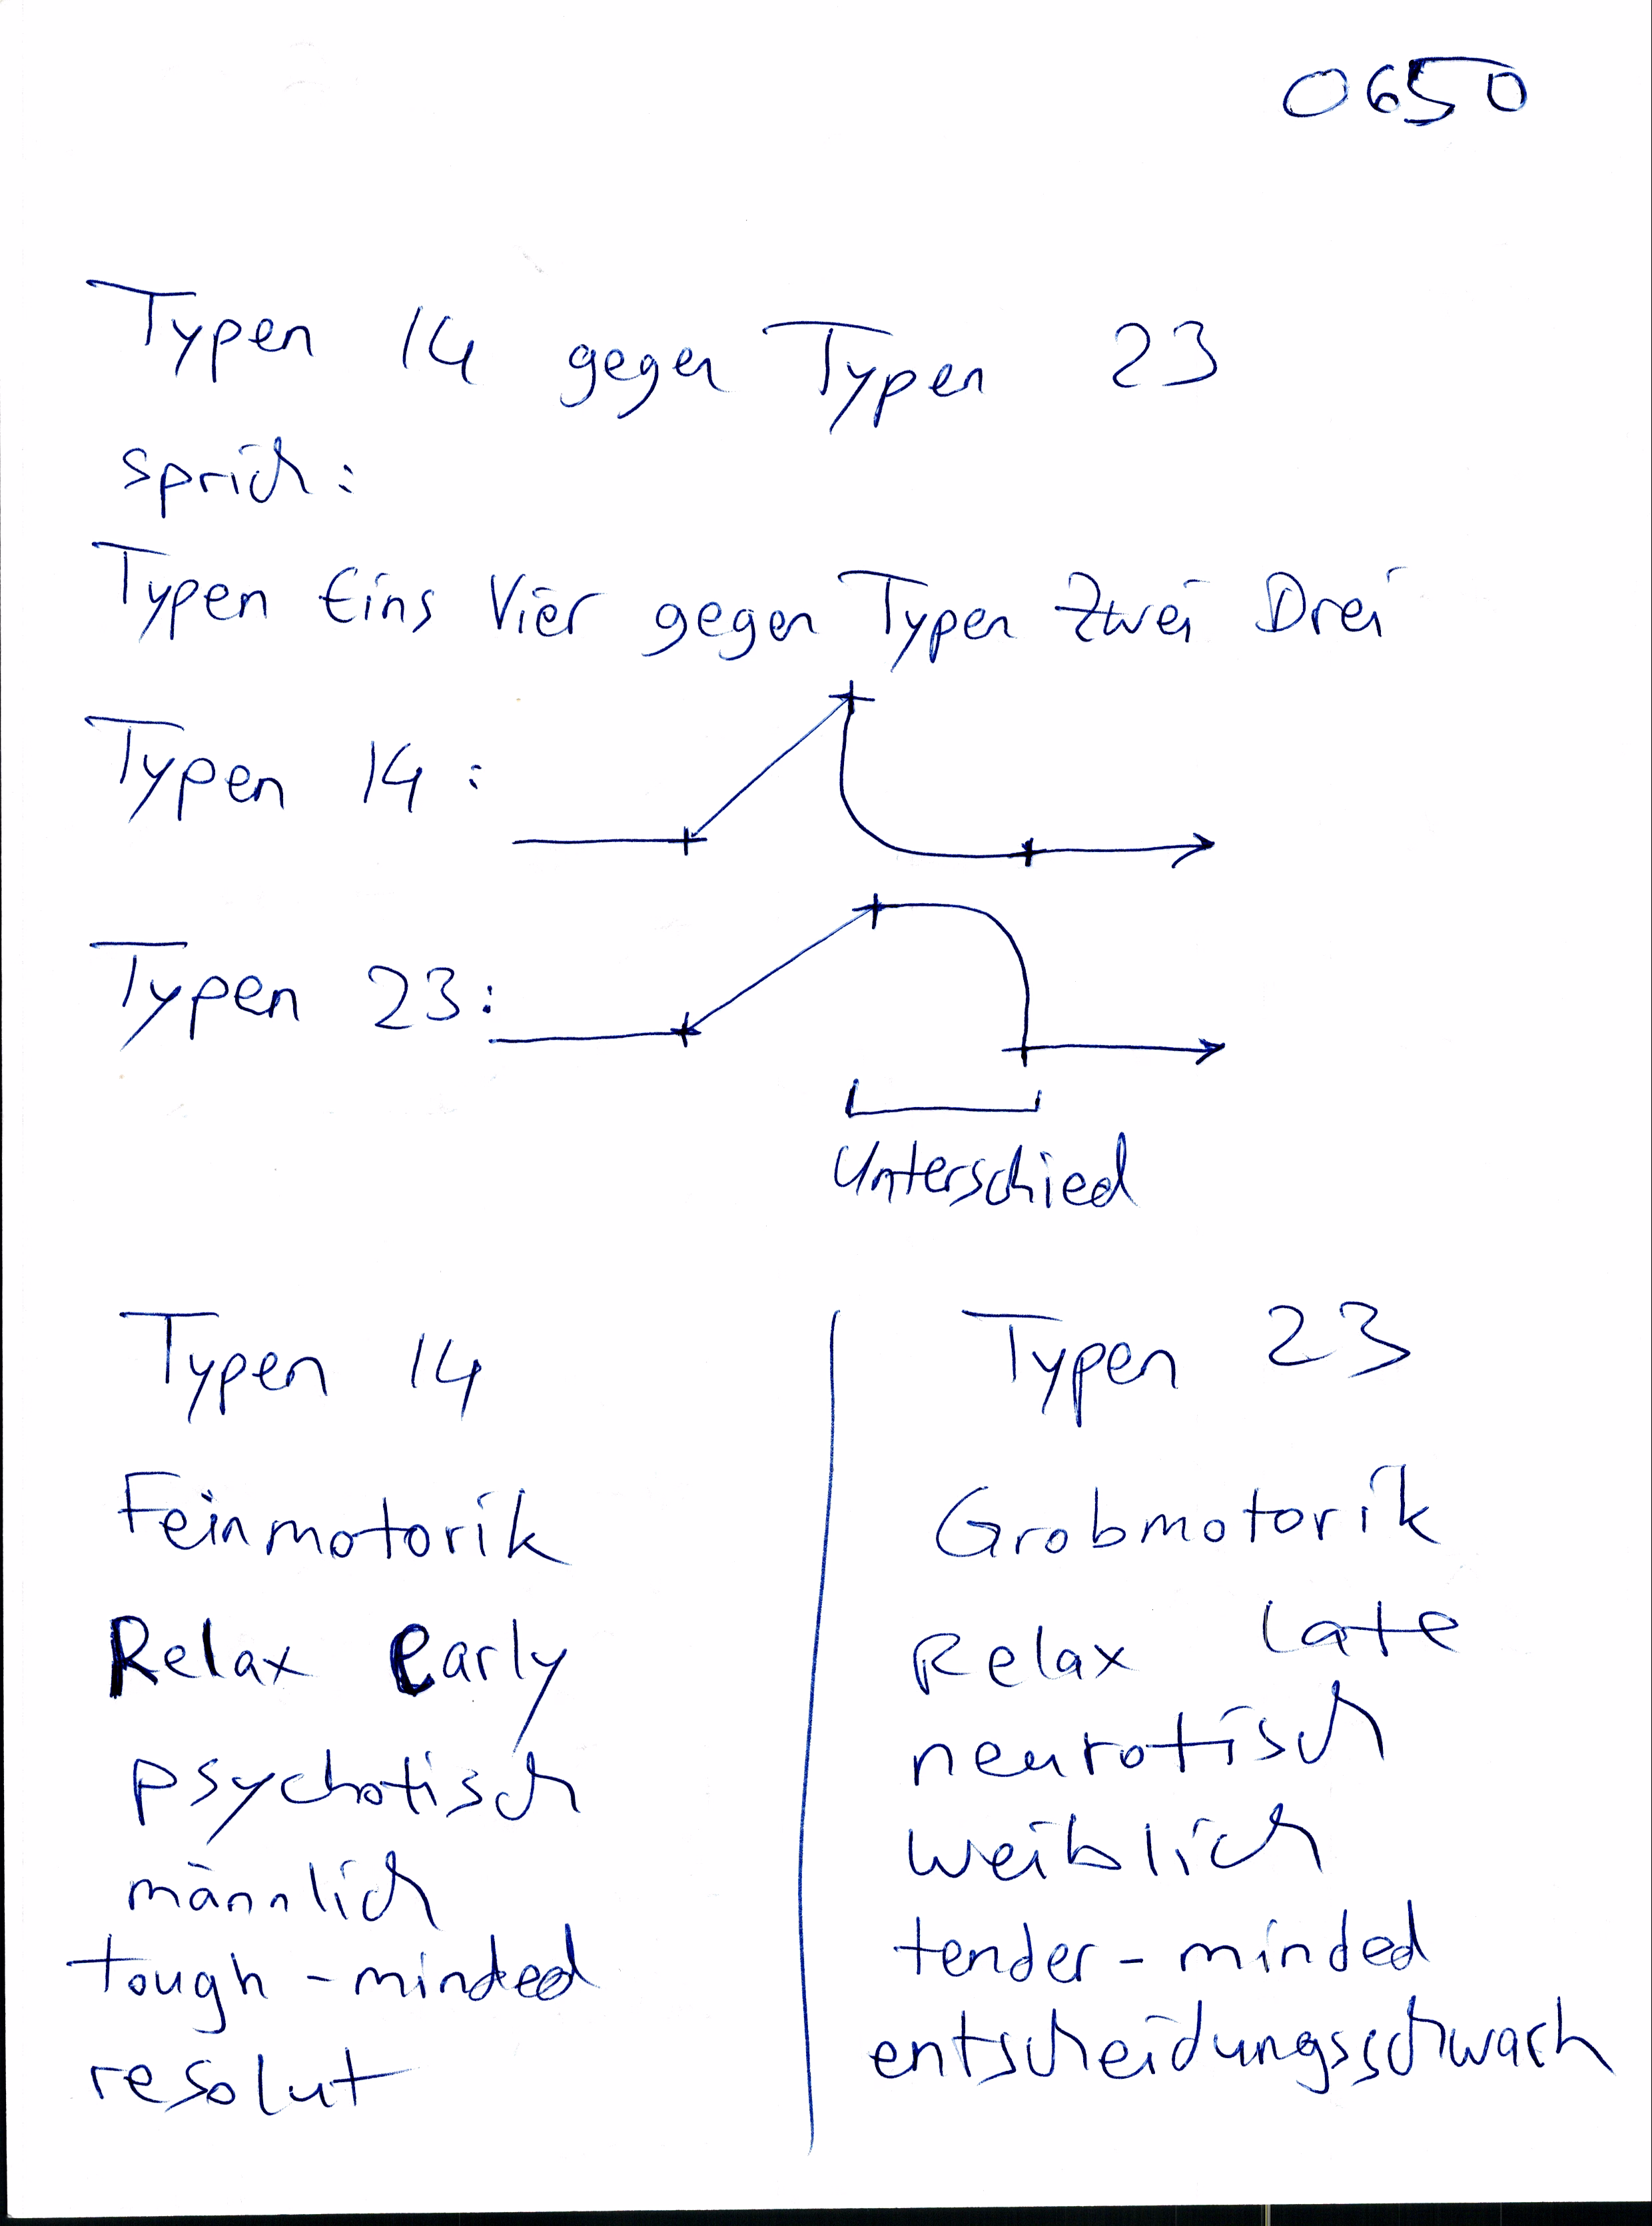 0650
Typen 14 gegen Typen 23
sprich:
Typen Eins Vier gegen Typen Zwei Drei
Typen 14:
Typen 23:
Unterschied
Typen 14
Feinmotorik
Relax early
psychotisch
männlich
tough-minded
resolut
Typen 23
Grobmotorik
Relax late
neurotisch
weiblich
tender-minded
entscheidungsschwach